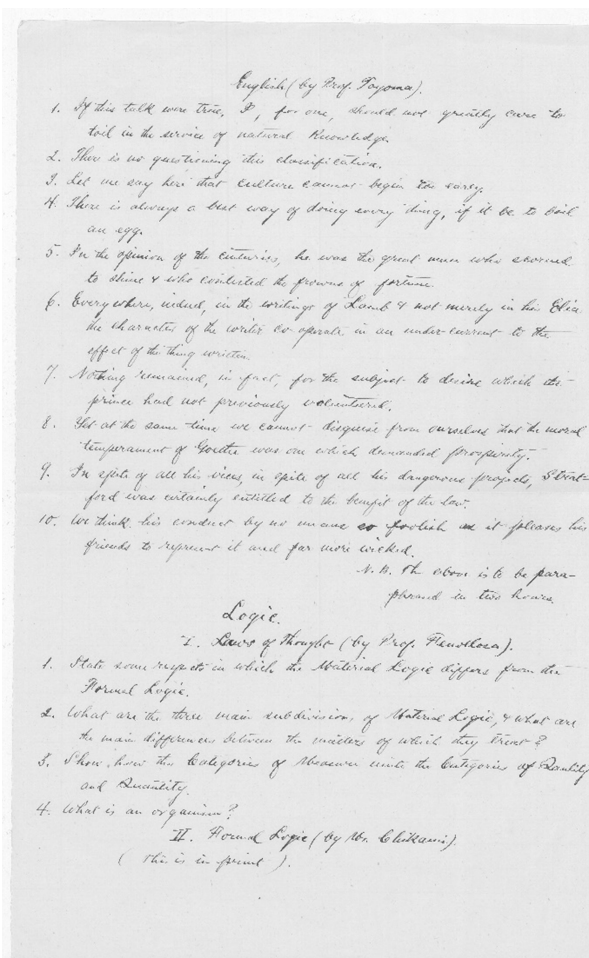 English (by Prof. Toyama).
1. If this talk were true, I, for one, should not greatly care to
toil in the service of natural Knowledge.
2. There is no questioning this classification.
3. Let me say here that culture cannot begin too early.
4. There is always a best way of doing every thing, if it be to boil
an egg.
5. In the opinion of the centuries, he was the great man who scorned
to shine & who contested the frowns of fortune.
6. Everywhere, indeed, in the writings of Lamb & not merely in his Elia
the character of the writer co-operate in an under-current to the
effect of the thing written.
7. Nothing remained, in fact, for the subject to desire which the
prince had not previously volunteered.
8. Yet at the same time we cannot disguise from ourselves that the moral
temperament of Goethe was one which demanded prosperity.
9. In spite of all his vices, in spite of all his dangerous projects, Straf-
ford was certainly entitled to the benefit of the law.
10. We think his conduct by no means so foolish as it pleases his
friends to represent it and far more wicked.
N.B. The above is to be para-
phrased in two hours.
Logic.
I. Laws of Thought (by Prof. Fenollosa).
1. State some respects in which the Material Logic differs from the
Formal Logic.
2. What are the three main subdivisions of Material Logic, & what are
the main differences between the matters of which they treat?
3. Show how the Categories of Measure unite the Categories of Quality
and Quantity.
4. What is an organism?
II. Formal Logic (by Mr. Chikami).
(This is in print).